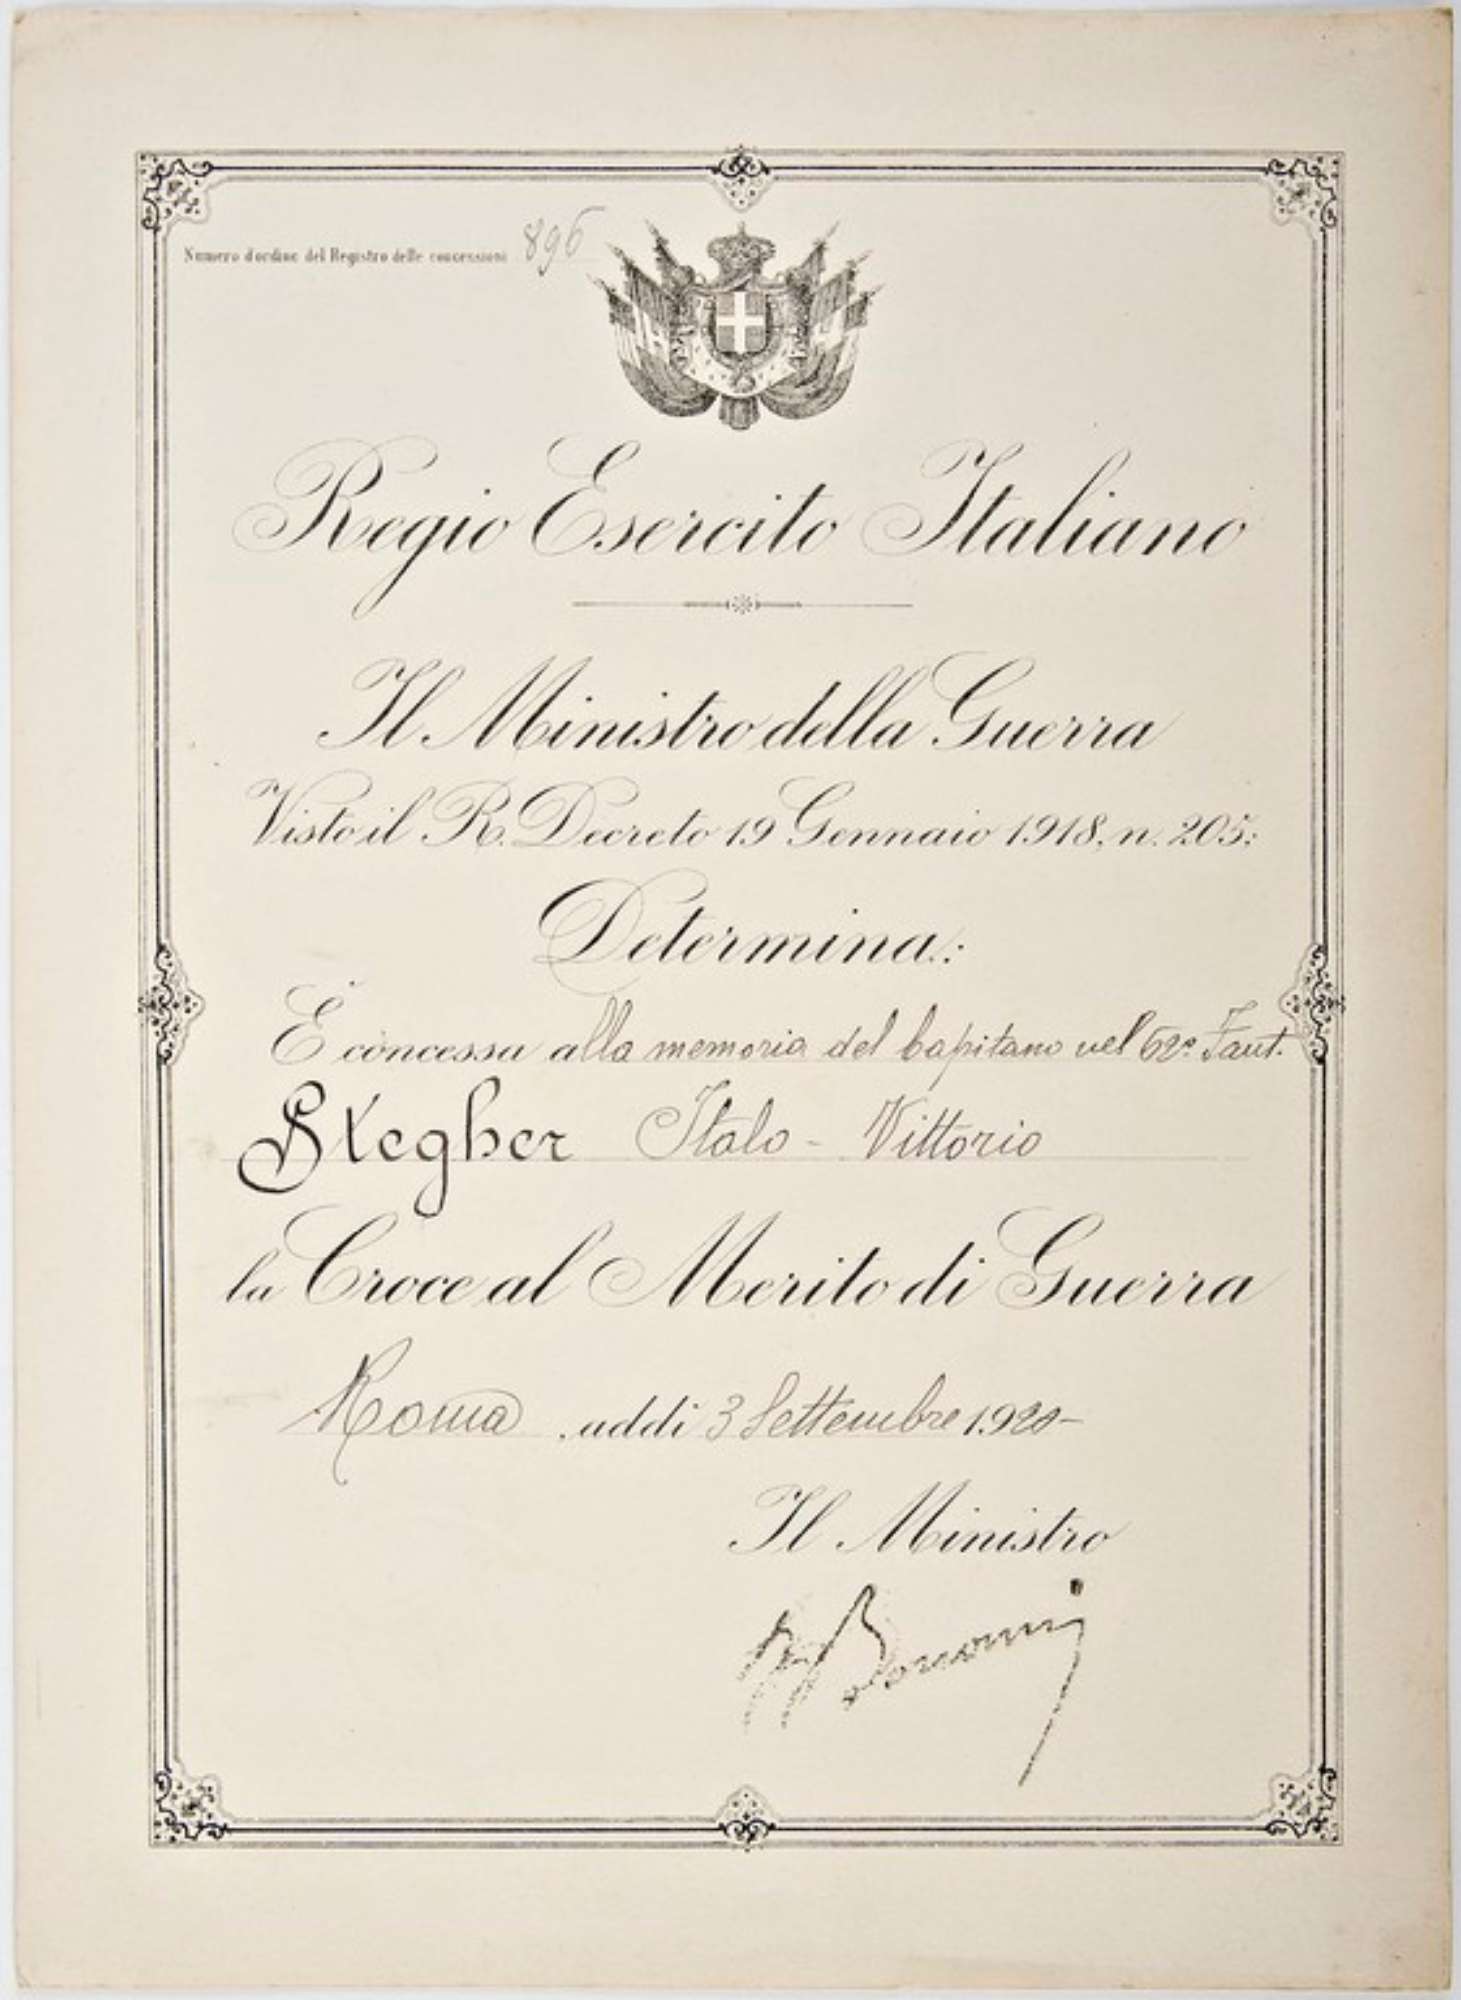 Numero d'ordine del Registro delle concessioni 896
Regio Esercito Italiano
Il Ministro della Guerra
Visto il R. Decreto 19 Gennaio 1918, n. 205:
Determina:
È concessa alla memoria del Capitano nel 62° Fant.
Stegher Italo - Vittorio
la Croce al Merito di Guerra
Roma, addì 3 Settembre 1920-
Il Ministro
Bonomi